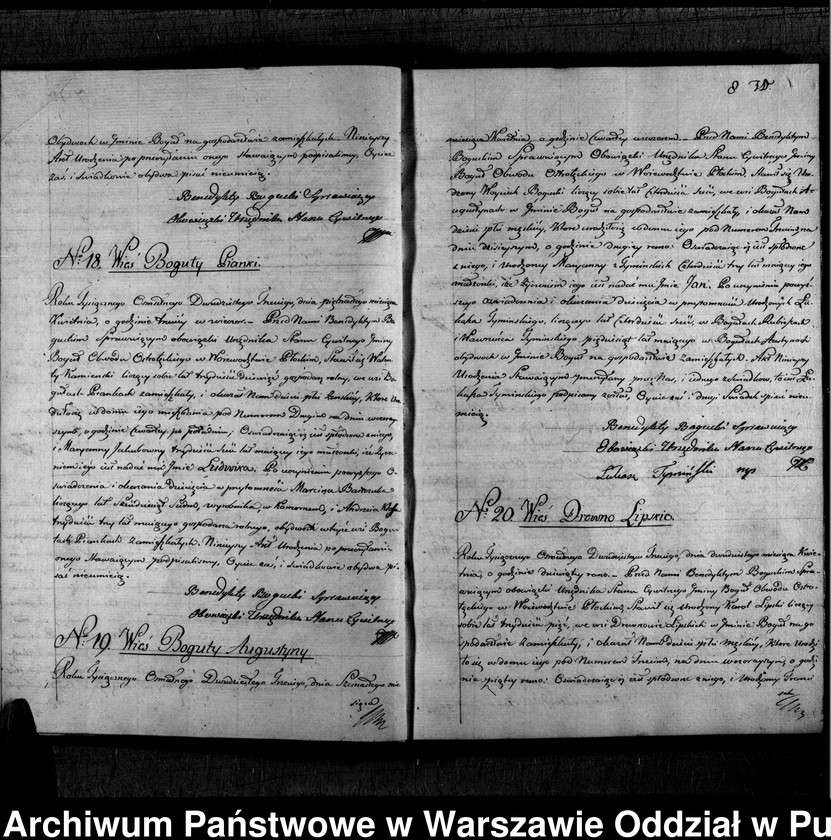 Obydwóch w Gminie Bogut na gospodarstwie zamieszkałych. Ninieyszy
Akt Urodzenia po przeczytaniu onego Stawaiącym podpisaliśmy, Oyciec
zaś i świadkowie obydwa pisać nieumieią.
Benedykty Bogucki Sprawuiący
Obowiązki Urzędnika Stanu Cywilnego
No. 18. Wieś Boguty Pianki.
Roku Tysiącznego Ośmsetnego Dwudziestego Trzeciego, dnia piętnastego miesiąca
Kwietnia, o godzinie trzeciey w wieczor. Przed Nami Benedyktym Bo
guckim sprawuiącym obowiązki Urzędnika Stanu Cywilnego Gminy
Bogut Obwodu Ostrołęckiego w Woiewodztwie Płockim, Stawił się Walen
ty Kamieński liczący sobie lat trzydzieści dziewięć gospodarz rolny, we wsi Bo
gutach Piankach zamieszkały, i okazał Nam dziecie płci żeńskiey, które U
rodziło się w domu iego mieszkania pod Numerem Drugim na dniu wczoray
szym, o godzinie czwartey po południu, Oświadczaiąc iż iest spłodzone z niego,
i Maryanny Jakubowny trzydzieści lat maiącey iego małżonki, iż życze
niem iego iest nadać mu Imie Ludwika. Po uczynieniu powyższego O
świadczenia i okazania dziecięcia w przytomności Marcina
liczącego lat wyrobnika, w Komornem, i Andrzeia
trzydzieści trzy lat maiącego gospodarza rolnego, obydwóch w teyże wsi Bogu
tach Piankach zamieszkałych. Ninieyszy Akt Urodzenia po przeczytaniu
onego Stawaiącym podpisaliśmy, Oyciec zaś, i świadkowie obydwa pi
sać nieumieią.
Benedykty Bogucki Sprawuiący
Obowiązki Urzędnika Stanu Cywilnego
No. 19. Wieś Boguty Augustyny
Roku Tysiącznego Ośmsetnego Dwudziestego Trzeciego, dnia Szesnastego mie
siąca
8
miesiąca Kwietnia, o godzinie czwartey wieczorem. Przed Nami Benedyktym
Boguckim Sprawuiącym Obowiązki Urzędnika Stanu Cywilnego Gminy
Bogut Obwodu Ostrołęckiego w Woiewództwie Płockim, Stawił się Uro
dzony Woyciech Bogucki liczący sobie lat czterdzieści sześć, we wsi Bogutach Au
gustynach w Gminie Bogut na gospodarstwie zamieszkały, i okazał Nam
dziecie płci męskiey, Które urodziło się w domu iego pod Numerem
dniu dzisieyszym, o godzinie drugiey rano. Oświadczaiąc iż iest spłodzone
z niego, i Urodzoney Maryanny z Tymińskich Czterdzieści trzy lat maiącey iego
małżonki, iż życzeniem iego iest nadać mu Imie Jan. Po uczynieniu powyż
szego oświadczenia i okazania dziecięcia w przytomności Urodzonych Łu
kasza Tymińskiego, liczącego lat Czterdzieści sześć, w Bogutach Rubieszach
i Wawrzeńca Tymińskiego pięćdziesiąt lat maiącego w Bogutach Augustynach
obydwóch w Gminie Bogut na gospodarstwie zamieszkałych. Akt Ninieyszy
Urodzenia Stawaiącym przeczytany przez Nas, i iednego z świadków, to iest Łu
kasza Tymińskiego podpisany został, Oyciec zaś i drugi Świadek pisać nieu
mieią.
Benedykty Bogucki Sprawuiący
Obowiązki Urzędnika Stanu Cywilnego
Lukasz Tyminski mp
No. 20. Wieś Drewno Lipskie.
Roku Tysiącznego Ośmsetnego Dwudziestego Trzeciego, dnia dwudziestego miesiąca Kwie
tnia, o godzinie dziewiątey rano. Przed Nami Benedyktym Boguckim Spra
wuiącym obowiązki Urzędnika Stanu Cywilnego Gminy Bogut Obwodu Ostro
łęckiego w Woiewództwie Płockim, Stawił się Urodzony Karol Lipski liczący
sobie lat trzydzieści pięć, we wsi Drewnowie Lipskich w Gminie Bogut na go
spodarstwie Zamieszkały, i okazał Nam dziecie płci męskiey, Które Urodzi
ło się w domu iego pod Numerem Trzecim, na dniu wczorayszym, o godzi
nie piątey rano. Oświadczaiąc iż iest spłodzone z niego, i Urodzoney
Archiwum Państwowe w Warszawie Oddział w Pu